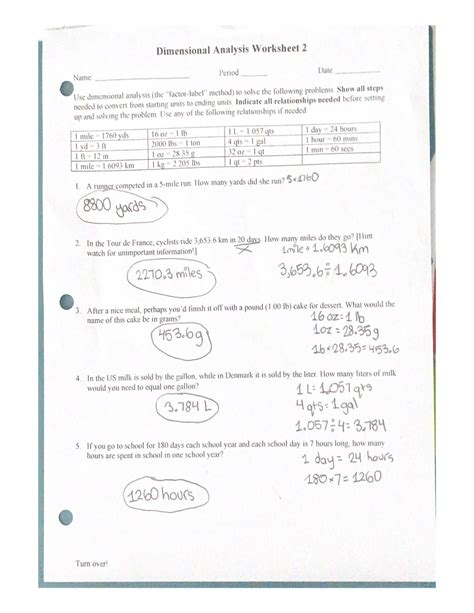 Dimensional Analysis Worksheet 2
Name: Period Date
Use dimensional analysis (the "factor-label" method) to solve the following problems. Show all steps
needed to convert from starting units to ending units. Indicate all relationships needed before setting
up and solving the problem. Use any of the following relationships if needed.
1 mile = 1760 yds 16 oz = 1 lb 1 L = 1.057 qts 1 day = 24 hours
1 yd = 3 ft 2000 lbs = 1 ton 4 qts = 1 gal 1 hour = 60 mins
1 ft = 12 in 1 oz = 28.35 g 32 oz = 1 qt 1 min = 60 secs
1 mile = 1.6093 km 1 kg = 2.205 lbs 1 qt = 2 pts
1. A runner competed in a 5-mile run. How many yards did she run? 5×1760
8800 yards
2. In the Tour de France, cyclists ride 3,653.6 km in 20 days. How many miles do they go? [Hint
watch for unimportant information!] 1 mile = 1.6093 Km
2270.3 miles 3,653.6 ÷ 1.6093
3. After a nice meal, perhaps you'd finish it off with a pound (1.00 lb) cake for dessert. What would the
name of this cake be in grams? 16 oz = 1 lb
453.6g 1oz = 28.35g
16×28.35=453.6
4. In the US milk is sold by the gallon, while in Denmark it is sold by the liter. How many liters of milk
would you need to equal one gallon? 1 L = 1.057 qts
3.784 L 4 qts = 1 gal
1.057÷4=3.784
5. If you go to school for 180 days each school year and each school day is 7 hours long, how many
hours are spent in school in one school year? 1 day = 24 hours
180×7=1260
1260 hours
Turn over!